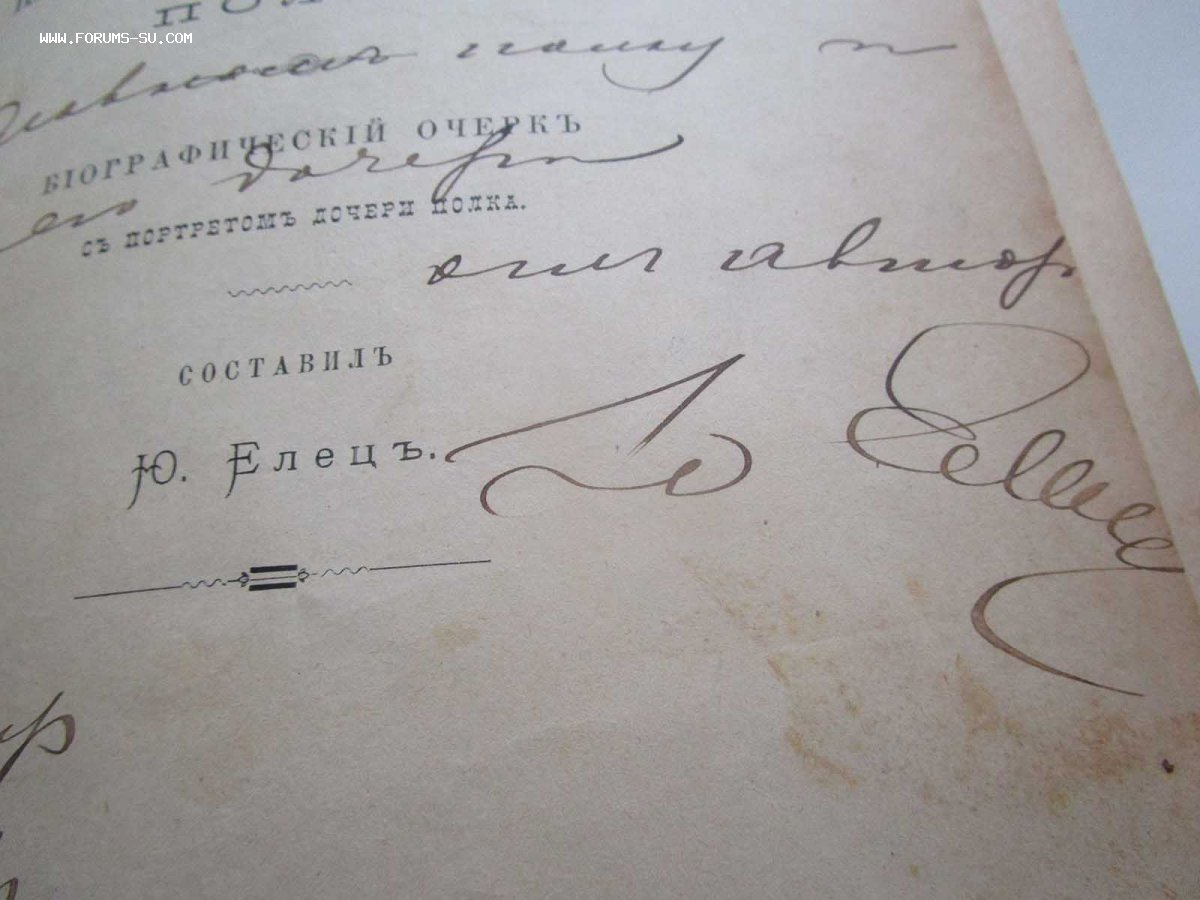 WWW.FORUMS-SU.COM
ПОЛ
полку и
БІОГРАФИЧЕСКІЙ ОЧЕРКЪ
его дочери
СЪ ПОРТРЕТОМЪ ДОЧЕРИ ПОЛКА.
отъ автор
СОСТАВИЛЪ
Ю. Елецъ.
Ю Елец